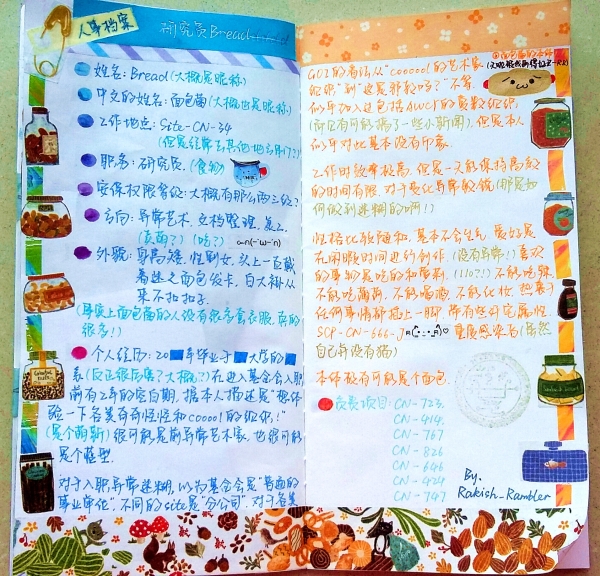 人事档案
研究员Bread
姓名：Bread(大概是昵称)
中文的姓名：面包菌(大概也是昵称)
工作地点：Site-CN-34
(但是经常去其他地方串门?)
职务：研究员.(食物)
安保权限等级：大概有那么两三级?
方向：异常艺术.文档整理.
(吃?)
外貌：身高矮.性别女.头上一直戴
着迷之面包发卡.白大褂从
来不扣扣子.
(事实上面包菌的人设有很多套衣服.真的
很多!)
个人经历：20 年毕业于 大学的
系(反正很厉害?大概?)在进入基金会入职
前有2年的空白期.据本人描述是"想体
验一下各类奇奇怪怪和cooool的组织!"
(是个萌新)很可能是前异常艺术家.也很可能
是个
对于入职异常迷糊.以为基金会是"普通的
事业单位".不同的site是"分公司".对于各类
GOI的看法从"cooool的艺术家
组织"到"这是邪教吗?"不等.
似乎加入过包括AWCY的复数组织
(而且有可能搞了一些小新闻).但是本人
似乎对此基本没有印象.
工作时效率极高.但是一天能保持高效
的时间有限.对于变化异常敏锐(那是如
何做到迷糊的啊!)
性格比较随和.基本不会生气.爱好是
在闲暇时间进行创作.(没有异常!)喜欢
的事物是吃的和萝莉.(110?!)不能吃辣.
不能吃海鲜.不能喝酒.不能化妆.热衷于
任何事情都插上一脚.带有些许宅属性.
SCP-CN-666-J 重度感染者(虽然
自己并没有猫)
本体极有可能是个面包.
负责项目：CN-723.
CN-414.
CN-767
CN-826
CN-646
CN-424
CN-747
By.
Rakish-Rambler